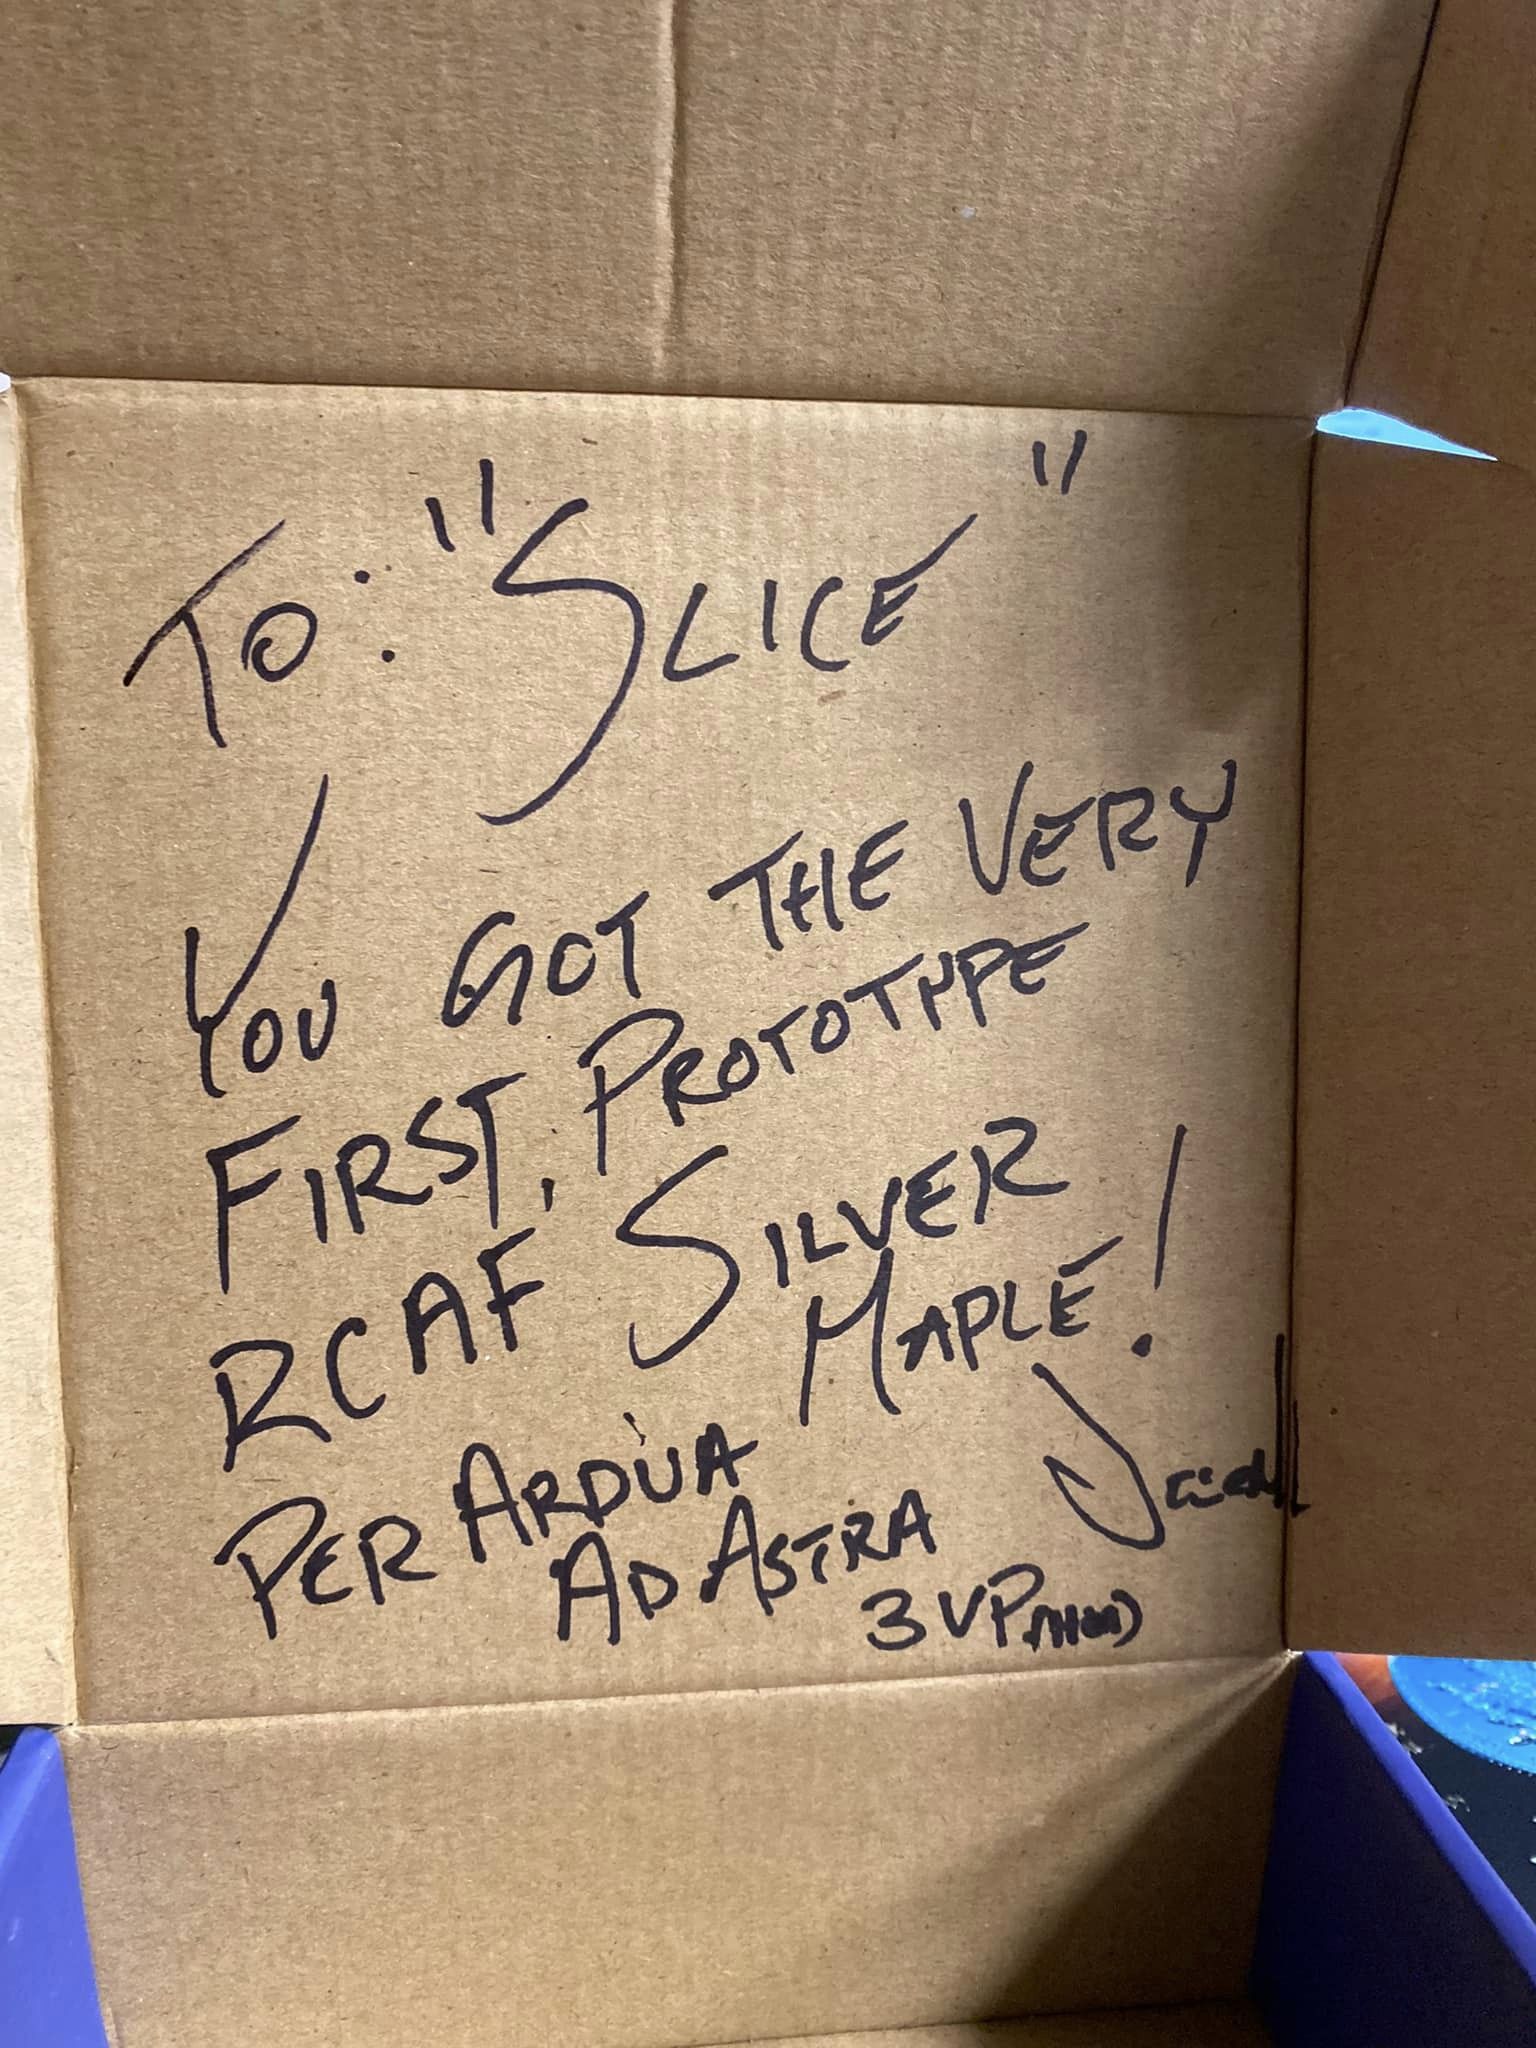 To: "SLICE"
YOU GOT THE VERY
FIRST, PROTOTYPE
RCAF SILVER
MAPLE!
PER ARDUA
AD ASTRA
3VP